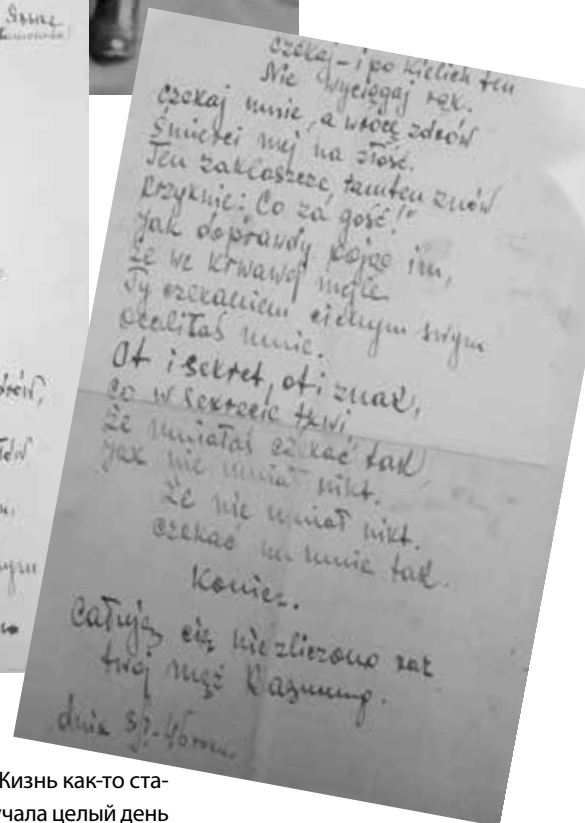 czekaj – i po kielich ten
Nie wyciągaj rąk.
Czekaj mnie, a wrócę zdrów
Śmierci mej na złość.
Ten zaklaszcze, tamten znów
Krzyknie: Co za gość!"
Jak doprawdy pojąć im,
Że we krwawej mgle
Ty czekaniem cichym swym
Ocaliłaś mnie.
Ot i sekret, ot i znak,
Co w sekrecie tkwi
Że umiałaś czekać tak,
jak nie umiał nikt.
Że nie umiał nikt.
czekać na mnie tak.
Koniec.
Całuję cię niezliczono raz
twój mąż
dnia
Жизнь как-то ста-
учала целый день